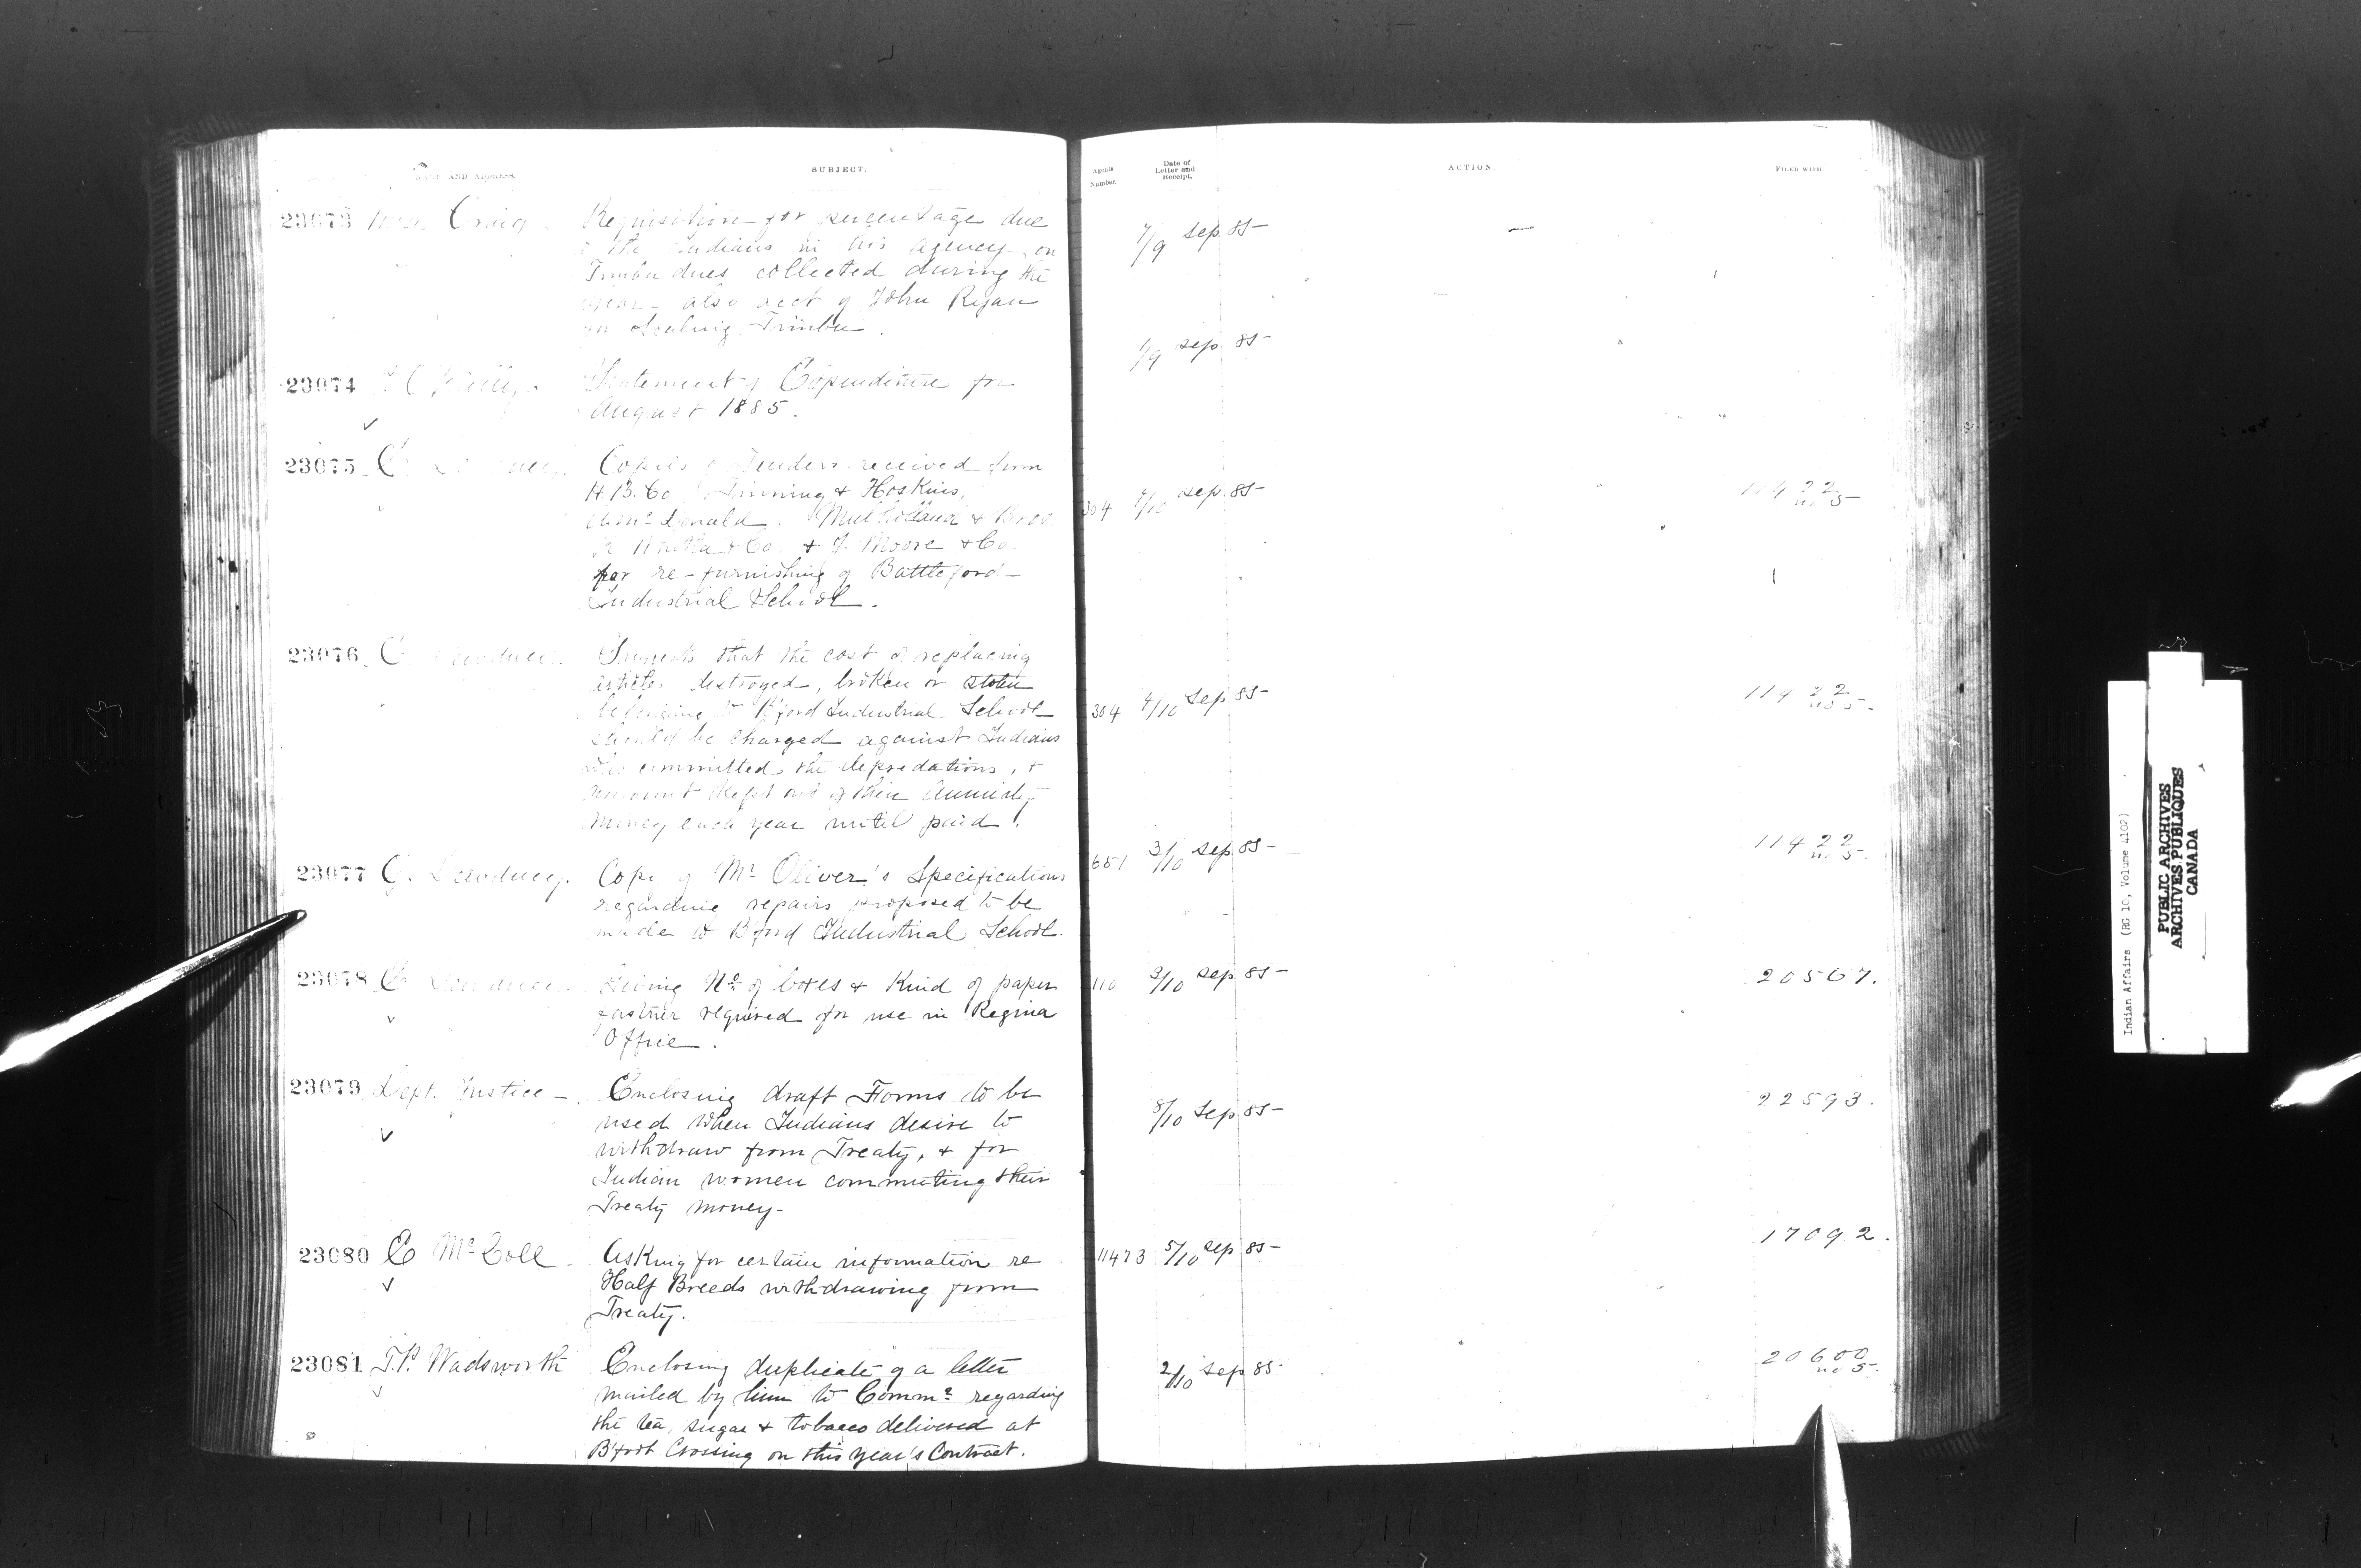 NAME AND ADDRESS.
SUBJECT.
Agents Number.
Date of Letter and Receipt.
ACTION.
FILED WITH
23073 Craig. Requisition for percentage due
the Indians in his agency on
Timber dues collected during the
year - also acct of John Ryan
Scaling Timber.
7/9 Sep 85
23074 Statement of Expenditure for
August 1885.
1/9 Sep 85
23075 Copies of Tenders received from
H. B. Co & Hoskins,
McDonald. Mulholland & Bros.
& Co. & J. Moore & Co.
for re-furnishing of Battleford
Industrial School.
304 Sep 85 11422
no 5
23076 Suggests that the cost of replacing
articles destroyed, broken or stolen
belonging to B'ford Industrial School
should be charged against Indians
who committed the depredations, &
amount kept out of their Annuity
money each year until paid.
304 Sep 85 11422
no 5.
23077 Copy of Mr Oliver's Specifications
regarding repairs proposed to be
made to B'ford Industrial School.
651 3/10 Sep 85 11422
no 5.
23078 Giving No of boxes & Kind of paper
fastner required for use in Regina
Office.
110 3/10 Sep 85 20567.
23079 Dept. Justice Enclosing draft Forms to be
used when Indians desire to
withdraw from Treaty, & for
Indian women commuting their
Treaty money-
8/10 Sep 85 22593.
23080 E McColl. Asking for certain information re
Half Breeds withdrawing from
Treaty.
11473 5/10 Sep 85 17092.
23081 T.P. Wadsworth Enclosing duplicate of a letter
mailed by him to Commr regarding
the tea, sugar & tobacco delivered at
B'foot Crossing on this year's Contract.
2/10 Sep 85 20600
no 5.
Indian Affairs (RG 10, Volume 4102)
PUBLIC ARCHIVES
ARCHIVES PUBLIQUES
CANADA